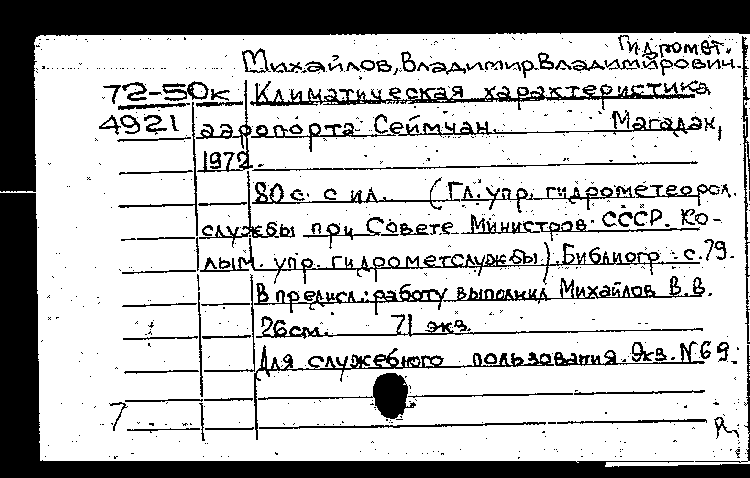 Гидромет.
Михайлов, Владимир Владимирович.
72-50к Климатическая характеристика
4921 аэропорта Сеймчан. Магадан,
1972.
80 с. с ил. (Гл. упр. гидрометеорол.
службы при Совете Министров СССР. Ко-
лым. упр. гидрометслужбы). Библиогр.: с. 79.
В предисл.: работу выполнил Михайлов В.В.
26см. 71 экз.
Для служебного пользования. Экз. N69.
7